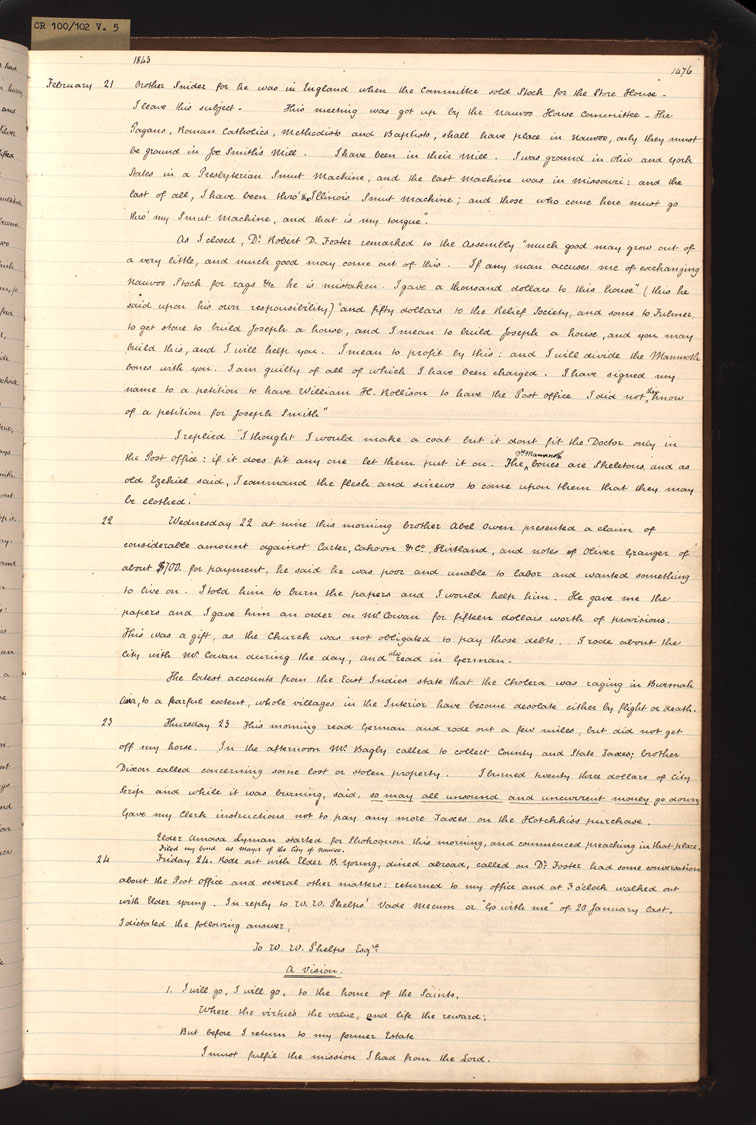 CR 100/102 V. 5
1843
1476
February 21 Brother Snider for he was in England when the Committee sold Stock for the Store House -
I leave this subject - This meeting was got up by the Nauvoo House Committee - The
Pagans, Roman Catholics, Methodists and Baptists, shall have place in Nauvoo, only they must
be ground in Joe Smith's Mill. I have been in their Mill. I was ground in Ohio and York
States in a Presbyterian Smut Machine, and the last machine was in Missouri: and the
last of all, I have been thro' the Illinois Smut Machine; and those who come here must go
thro' my Smut Machine, and that is my tongue".
As I closed, Dr. Robert D. Foster remarked to the Assembly "much good may grow out of
a very little, and much good may come out of this. If any man accuses me of exchanging
Nauvoo Stock for rags &c he is mistaken. I gave a thousand dollars to this house" (this he
said upon his own responsibility) "and fifty dollars to the Relief Society, and some to Fulmer,
to get stone to build Joseph a house, and I mean to build Joseph a house, and you may
build this, and I will help you. I mean to profit by this: and I will divide the Mammoth
bones with you. I am guilty of all of which I have been charged. I have signed my
name to a petition to have William H. Rollison to have the Post office I did not then know
of a petition for Joseph Smith"
I replied "I thought I would make a coat but it dont fit the Doctor only in
the Post Office: if it does fit any one let them put it on. The Mammoth bones are Skeletons, and as
old Ezekiel said, I command the flesh and sinews to come upon them that they may
be clothed.
22 Wednesday 22 at nine this morning brother Abel Owen presented a claim of
considerable amount against Carter, Cahoon & Co., Kirtland, and notes of Oliver Granger of
about $700. for payment, he said he was poor and unable to labor and wanted something
to live on. I told him to burn the papers and I would help him. He gave me the
papers and I gave him an order on Mr. Cowan for fifteen dollars worth of provisions.
This was a gift, as the Church was not obligated to pay those debts. I rode about the
city with Mr. Cowan during the day, and also read in German.
The latest accounts from the East Indies state that the Cholera was raging in Burmah
to a fearful extent, whole villages in the Interior have become desolate either by flight or death.
23 Thursday 23 This morning read German and rode out a few miles, but did not get
off my horse. In the afternoon Mr. Bagby called to collect County and State Taxes; brother
Dixon called concerning some lost or stolen property. I burned twenty three dollars of City
Scrip and while it was burning, said, so may all unsound and uncurrent money go down
Gave my Clerk instructions not to pay any more Taxes on the Hotchkiss purchase.
Elder Amasa Lyman started for Shokoquon this morning, and commenced preaching in that place.
Filed my bond as Mayor of the City of Nauvoo.
24 Friday 24. Rode out with Elder B. Young, dined abroad, called on Dr. Foster had some conversation
about the Post Office and several other matters: returned to my office and at 3 o'clock walked out
with Elder Young. In reply to W. W. Phelps' Vade Mecum or "Go with me" of 20 January last,
I dictated the following answer,
To W. W. Phelps Esqre.
A Vision.
1. I will go, I will go, to the home of the Saints,
Where the virtue's the value, and life the reward;
But before I return to my former Estate
I must fulfil the mission I had from the Lord.